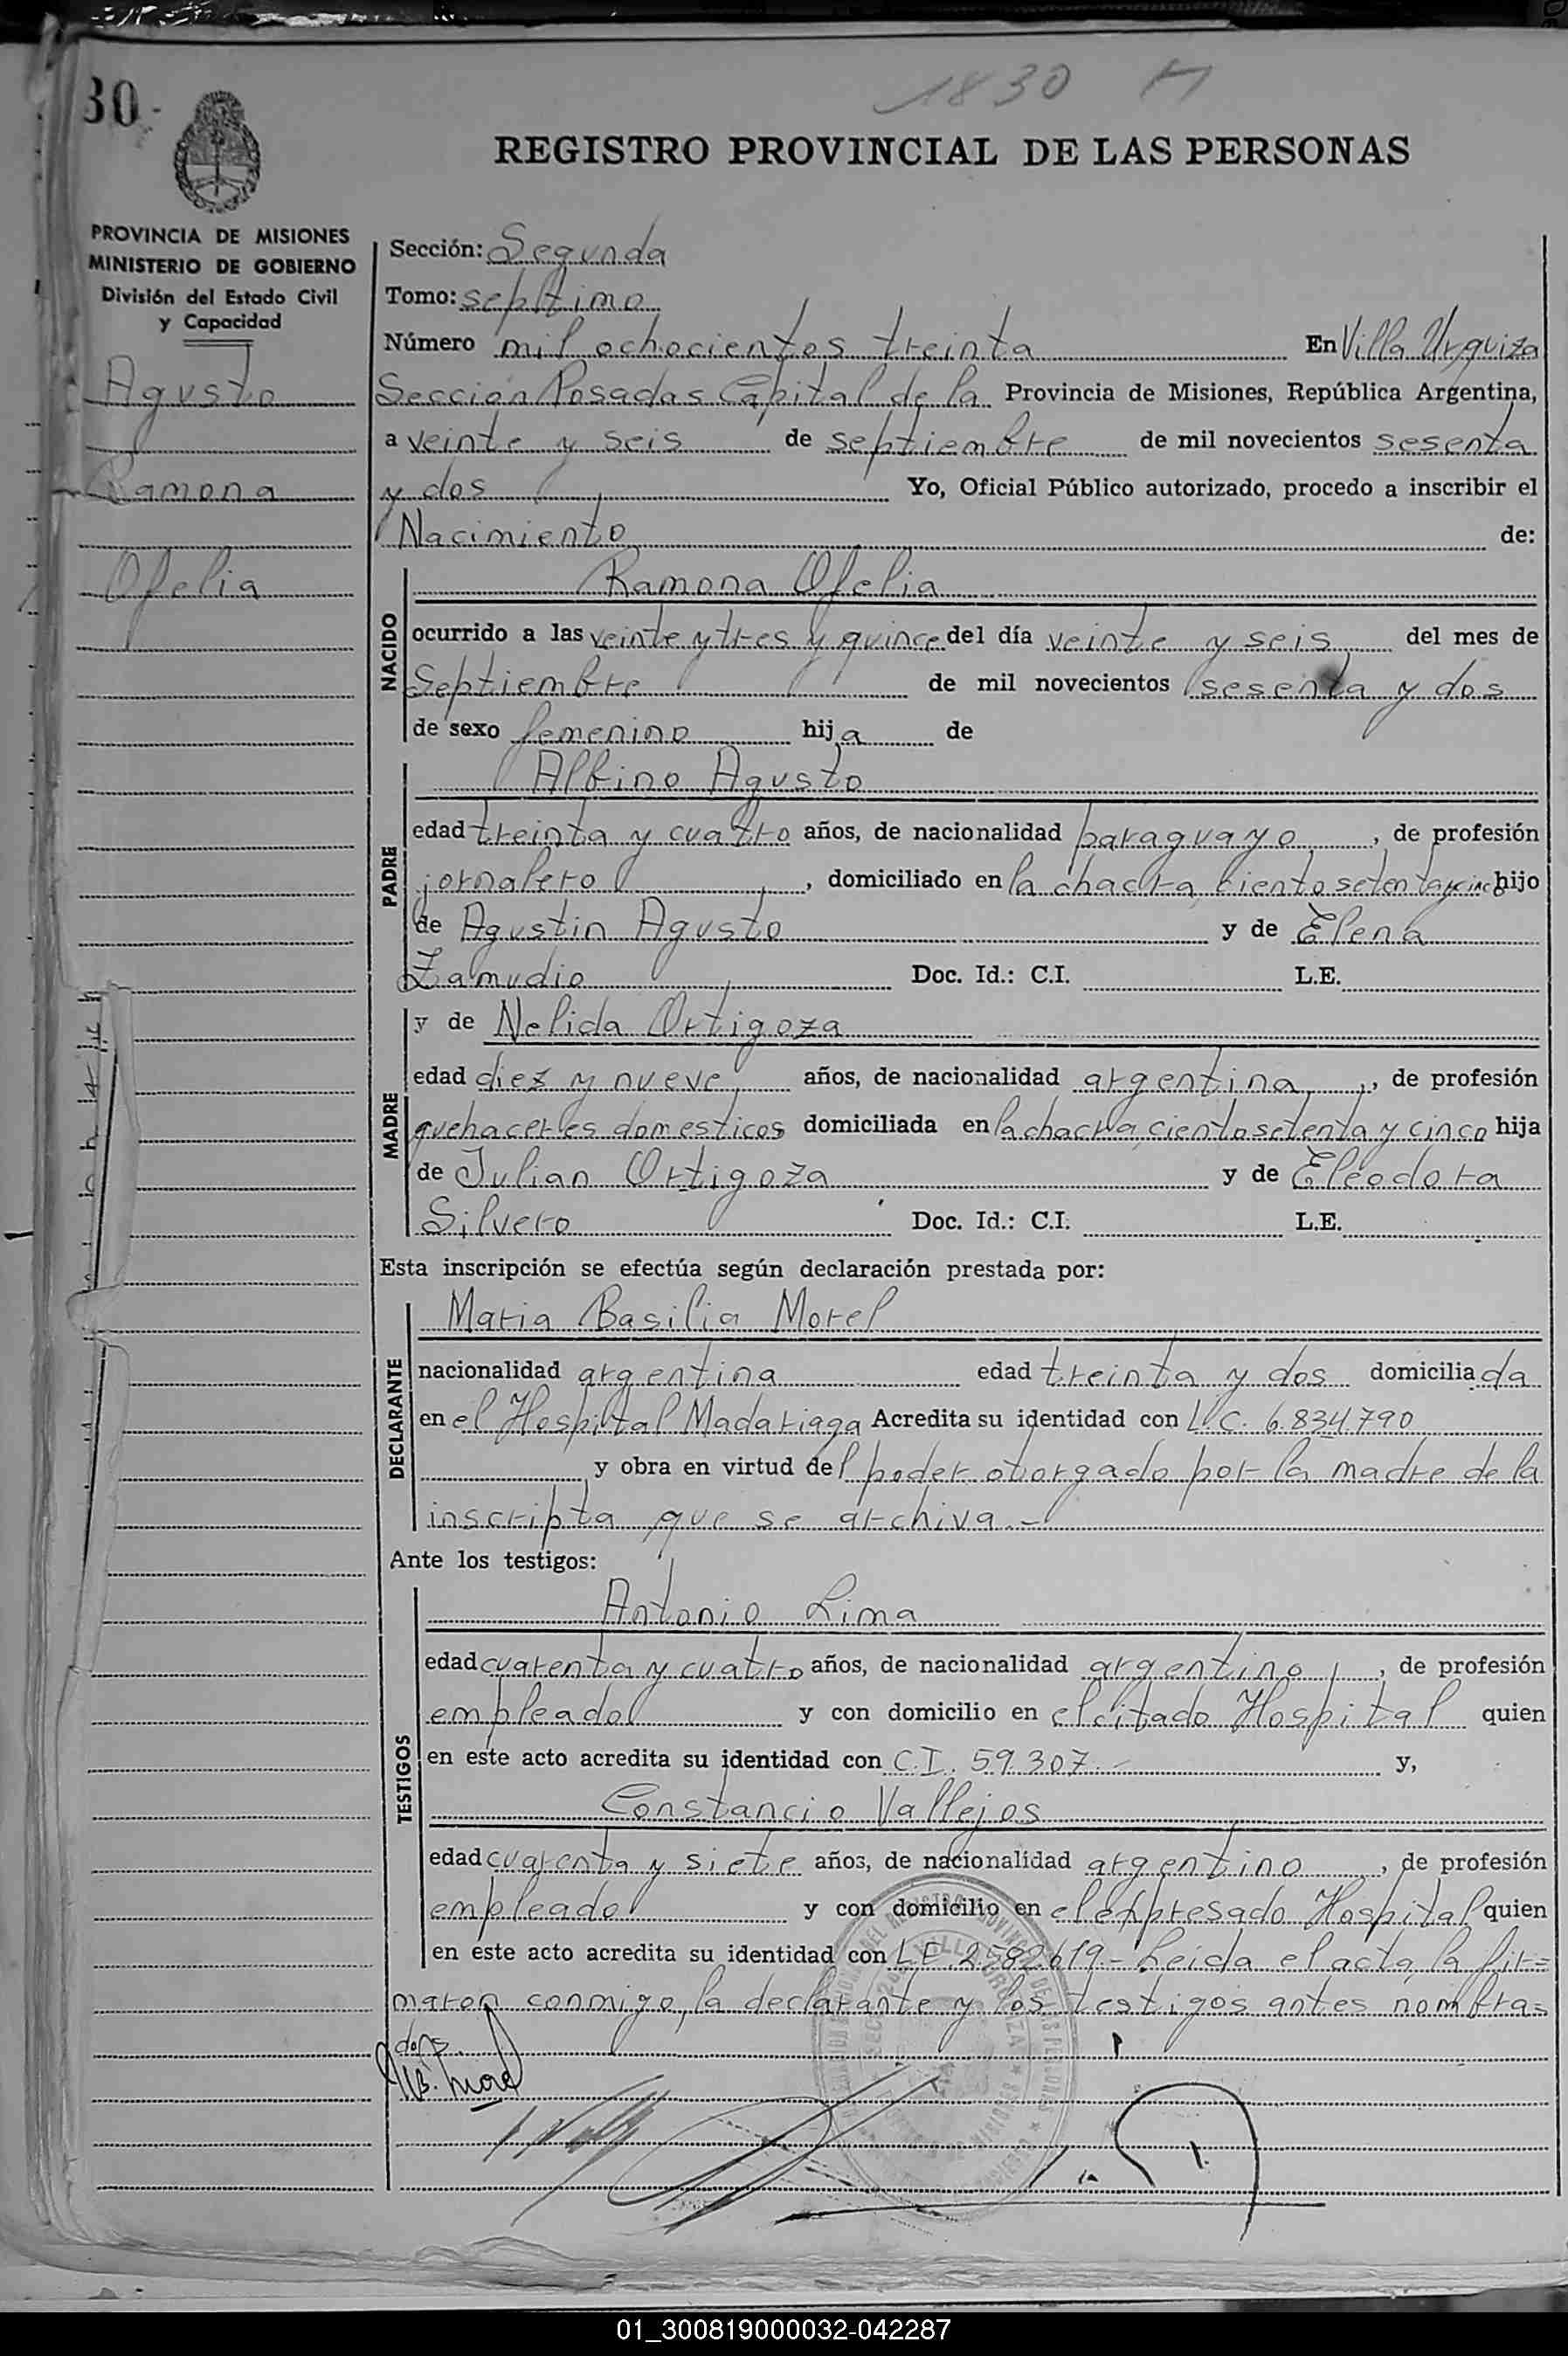 1830 H
30-
REGISTRO PROVINCIAL DE LAS PERSONAS
PROVINCIA DE MISIONES
MINISTERIO DE GOBIERNO
División del Estado Civil
y Capacidad
Agusto
Ramona
Ofelia
Sección: Segunda
Tomo: septimo
Número mil ochocientos treinta En Villa Urquiza
Sección Posadas Capital de la Provincia de Misiones, República Argentina,
a veinte y seis de septiembre de mil novecientos sesenta
y dos Yo, Oficial Público autorizado, procedo a inscribir el
Nacimiento de:
NACIDO
Ramona Ofelia
ocurrido a las veinte y tres y quince del día veinte y seis del mes de
Septiembre de mil novecientos sesenta y dos
de sexo femenino hija de
PADRE
Albino Agusto
edad treinta y cuatro años, de nacionalidad paraguayo, de profesión
jornalero, domiciliado en la chacra ciento setenta y cinco hijo
de Agustin Agusto y de Elena
Zamudio Doc. Id.: C.I. L.E.
MADRE
y de Nelida Ortigoza
edad diez y nueve años, de nacionalidad argentina, de profesión
quehaceres domesticos domiciliada en la chacra ciento setenta y cinco hija
de Julian Ortigoza y de Eleodora
Silvero Doc. Id.: C.I. L.E.
Esta inscripción se efectúa según declaración prestada por:
DECLARANTE
Maria Basilia Morel
nacionalidad argentina edad treinta y dos domiciliada
en el Hospital Madariaga Acredita su identidad con L.C. 6.834.790
y obra en virtud del poder otorgado por la madre de la
inscripta que se archiva.-
Ante los testigos:
TESTIGOS
Antonio Lima
edad cuarenta y cuatro años, de nacionalidad argentino, de profesión
empleado y con domicilio en el citado Hospital quien
en este acto acredita su identidad con C.I. 59.307.- y,
Constancio Vallejos
edad cuarenta y siete años, de nacionalidad argentino, de profesión
empleado y con domicilio en el expresado Hospital quien
en este acto acredita su identidad con L.E. 2582619.- Leida el acta, la fir=
maron conmigo, la declarante y los testigos antes nombra=
dos.
M B. Morel
01_300819000032-042287